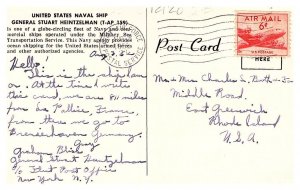 UNITED STATES NAVAL SHIP
GENERAL STUART HEINTZELMAN (T-AP 159)
is one of a globe-circling fleet of Navy and commercial ships operated under the Military Sea Transportation Service. This Navy agency provides ocean shipping for the United States armed forces and other authorized personnel.
Hello!
This is the ship I'm
on. At the time I write
this card we are 80 miles
from La Pallice, France,
from there we go to
Bremerhaven Germany.
Guy
Graham Blish
General Stuart Heintzelman
% Fleet Post Office
New York N.Y.
Post Card
AIR MAIL
6¢
U.S. POSTAGE
HERE
Mr & Mrs Charles S.
Middle Road,
East Greenwich
Rhode Island
U.S.A.